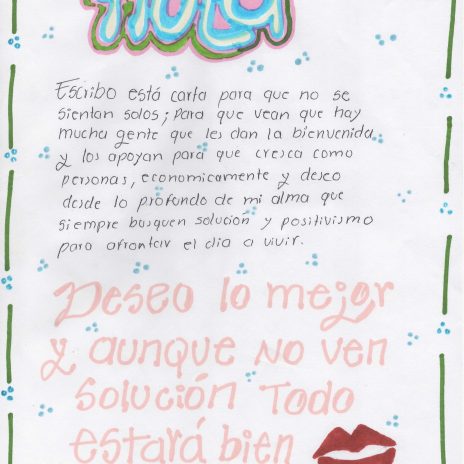 HOLA
Escribo está carta para que no se
sientan solos; para que vean que hay
mucha gente que les dan la bienvenida
y los apoyan para que cresca como
personas, economicamente y deseo
desde lo profundo de mi alma que
siempre busquen solución y positivismo
para afrontar el dia a vivir.
Deseo lo mejor
y aunque no ven
solución Todo
estará bien